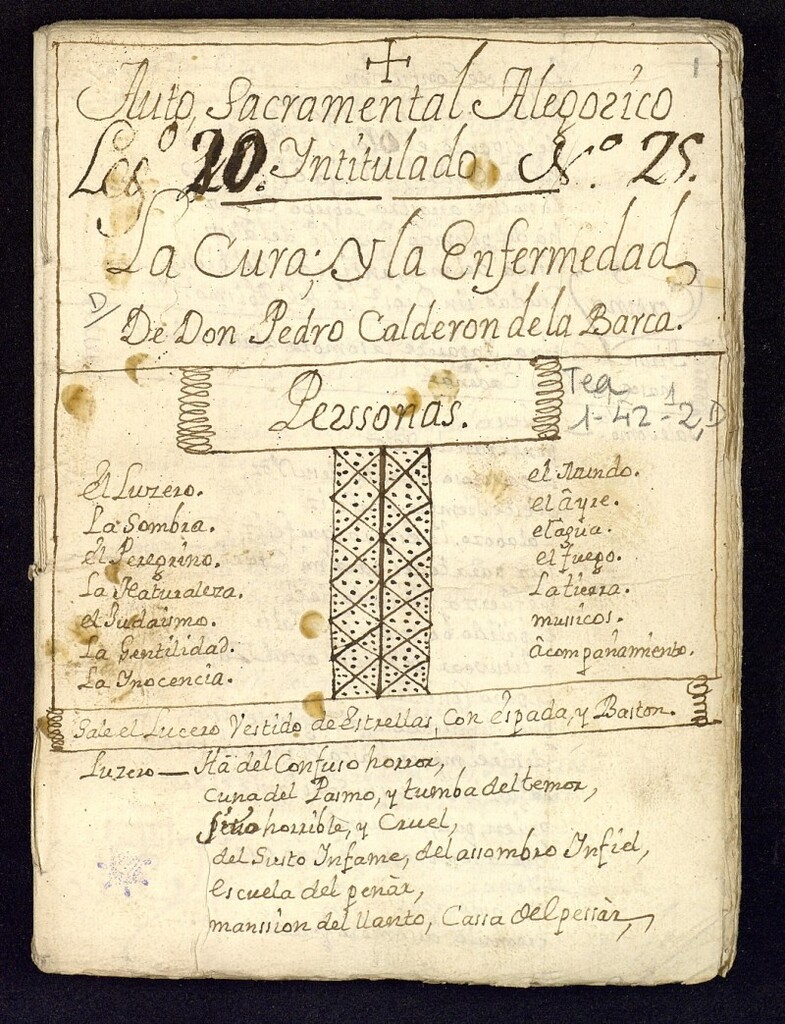 1
Auto, Sacramental Alegorico
Leg.º 20. Yntitulado N.º 25.
La Cura; y la Enfermedad,
D/
De Don Pedro Calderon de la Barca.
Perssonas.
Tea
1-42-1-2, D
el Luzero.
La Sombra.
el Peregrino.
La Naturaleza.
el Judaismo.
La Gentilidad.
La Ynocencia.
el Mundo.
el Ayre.
el agua.
el fuego.
La tierra.
musicos.
acompañamiento.
Sale el Lucero Vestido de Estrellas, con espada, y Baston.
Luzero — Ha del Confuso horror,
cuna del Pasmo, y tumba del temor,
sitio horrible, y Cruel,
del Susto Infame, del assombro Infiel,
escuela del penàr,
manssion del llanto, Cassa del pessàr,